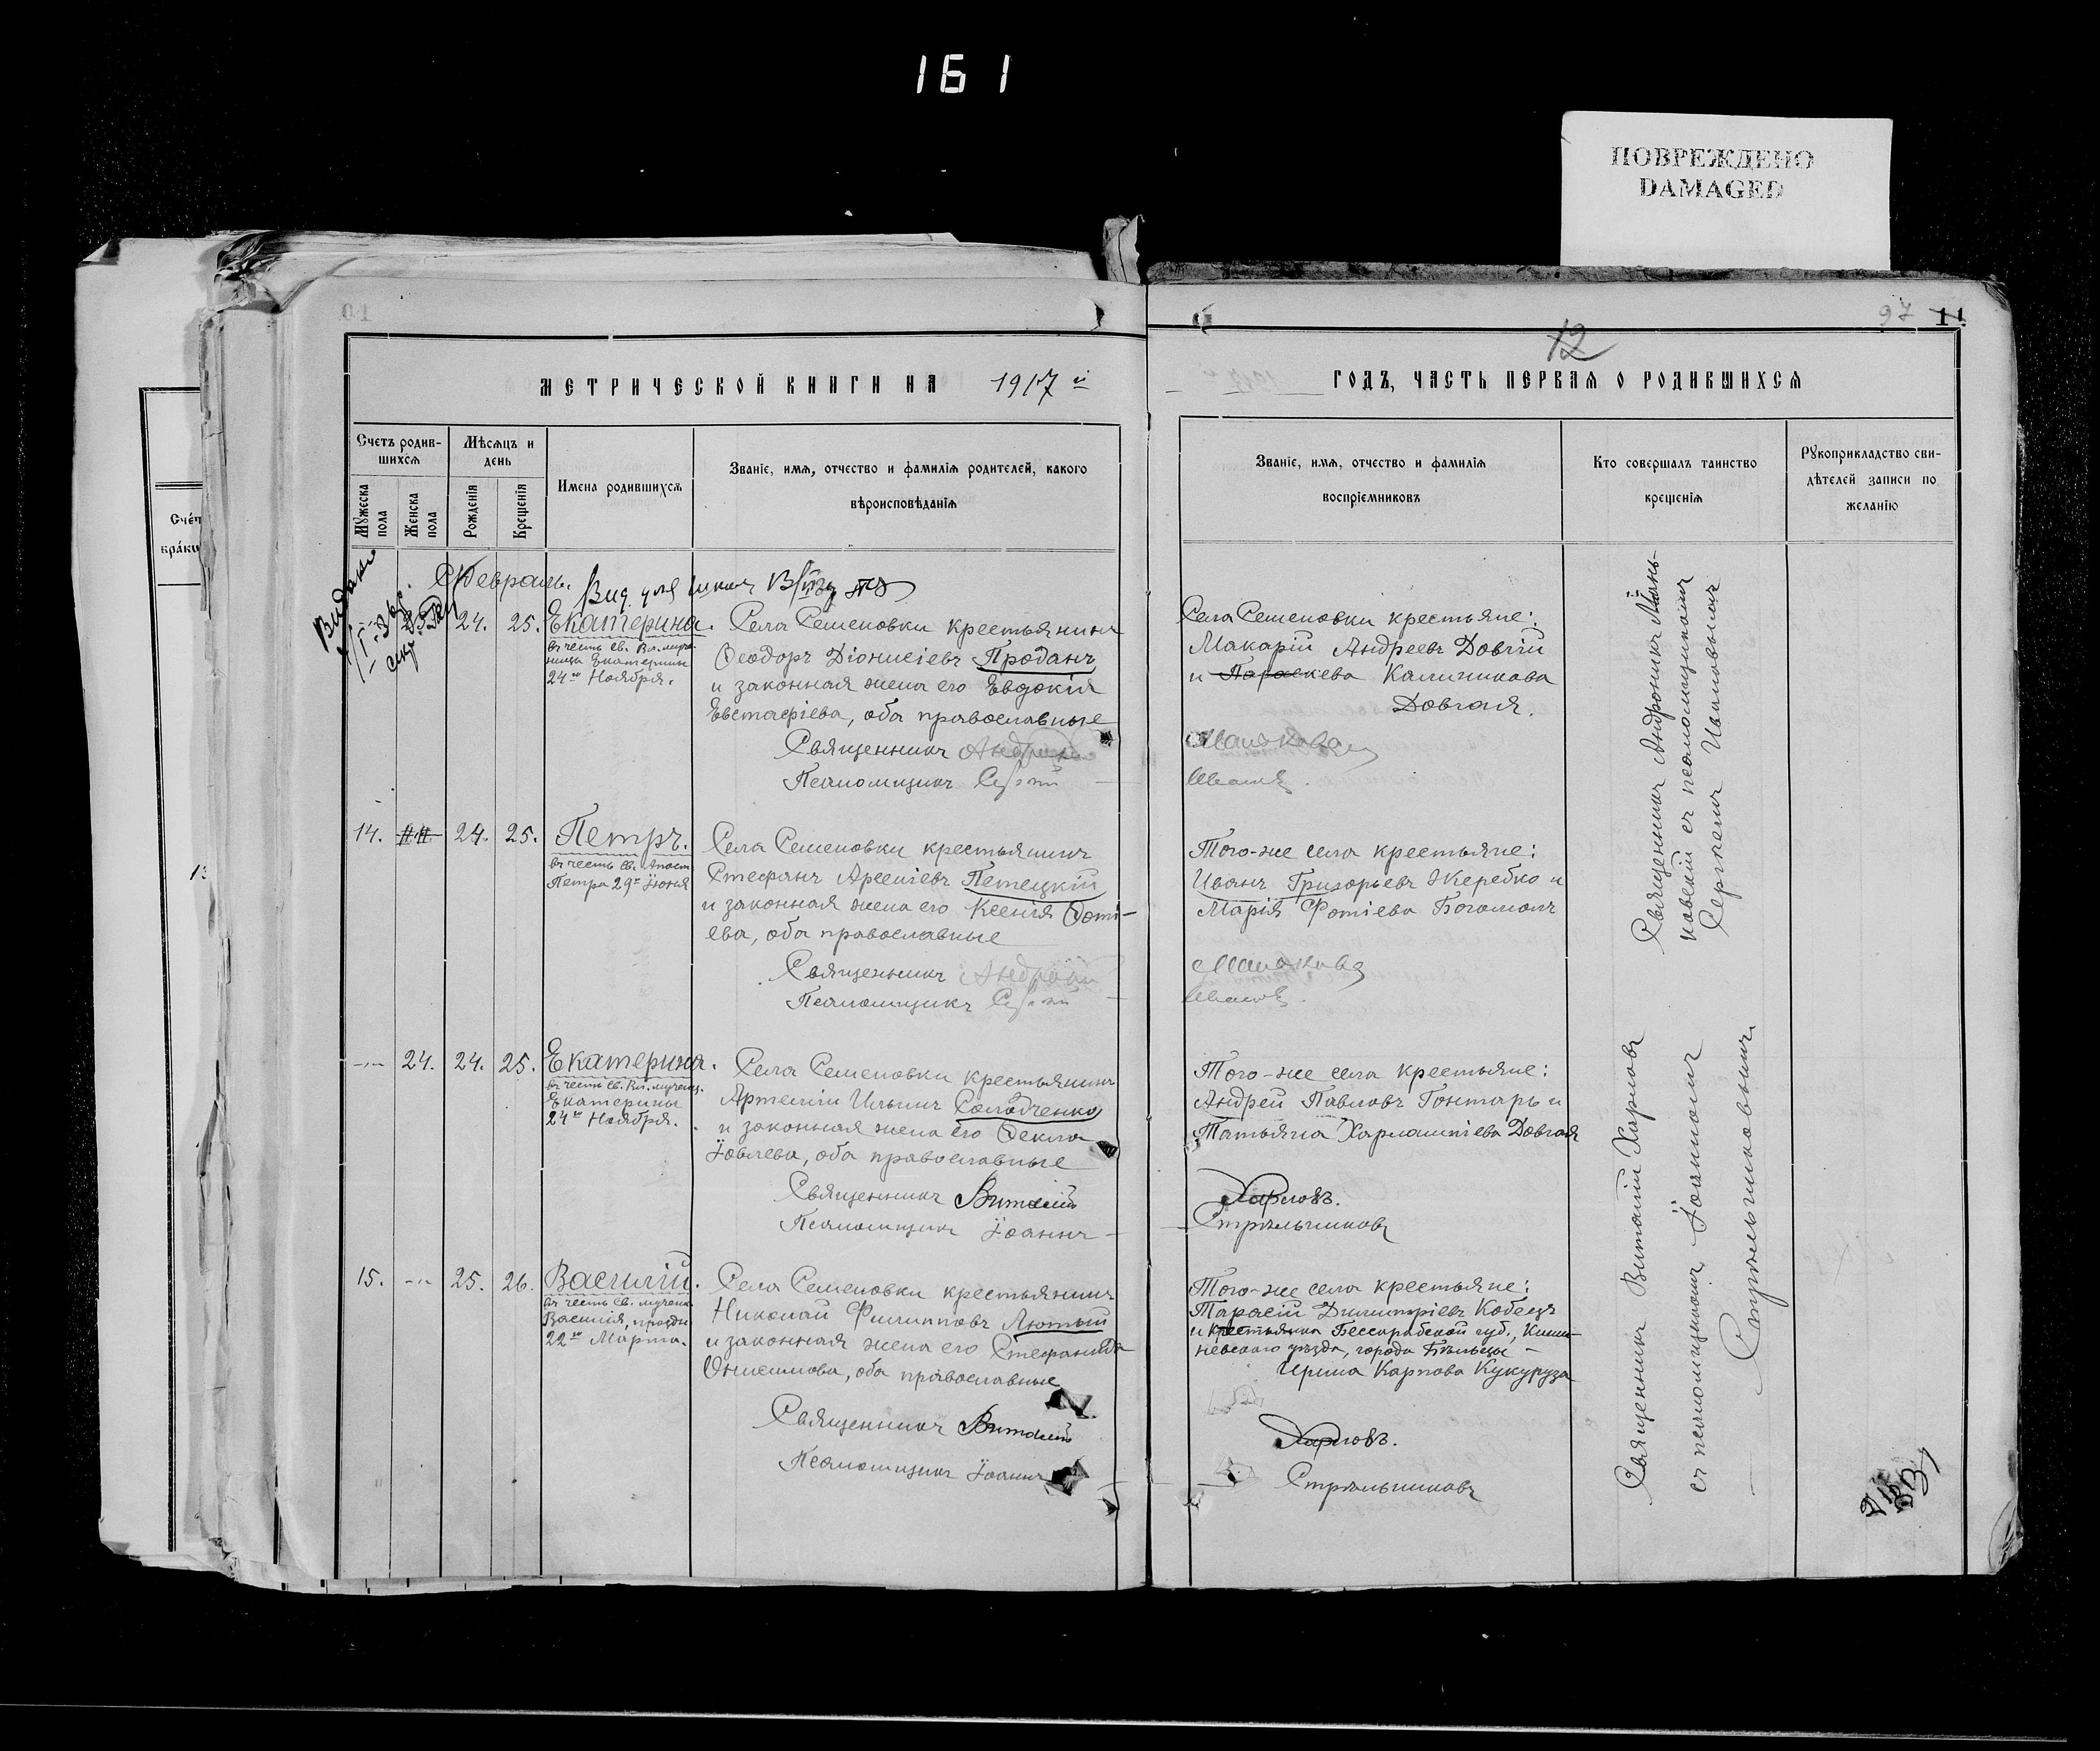 161
ПОВРЕЖДЕНО
DAMAGED
97 11.
12
МЕТРИЧЕСКОЙ КНИГИ НА 1917 й
ГОДЪ, ЧАСТЬ ПЕРВАЯ О РОДИВШИХСЯ
Счетъ родив-
шихся
Мѣсяцъ и
день
Мужеска пола
Женска пола
Рожденія
Крещенія
Имена родившихся
Званіе, имя, отчество и фамилія родителей, какого
вѣроисповѣданія
Званіе, имя, отчество и фамилія
воспріемниковъ
Кто совершалъ таинство
крещенія
Рукоприкладство сви-
дѣтелей записи по
желанію
Февраль.
24. 25. Екатерина.
въ честь св. Вл.муче-
ницы Екатерины
24го Ноября.
Села Семеновки крестьянинъ
Ѳеодоръ Діонисіевъ Проданъ
и законная жена его Евдокія
Евстафіева, оба православные
Священникъ
Псаломщикъ
Села Семеновки крестьяне:
Макарій Андреевъ Довгій
и Параскева Калиникова
Довгая.
14. 24. 25. Петръ.
въ честь св. Апост.
Петра 29го Іюня
Села Семеновки крестьянинъ
Стефанъ Арсеніевъ Петецкій
и законная жена его Ксенія Ѳоті-
ева, оба православные
Священникъ
Псаломщикъ
Того-же села крестьяне:
Иванъ Григорьевъ Жеребко и
Марія Фотіева Богомолъ
24. 24. 25. Екатерина.
въ честь св. Вл. мучениц.
Екатерины
24го Ноября.
Села Семеновки крестьянинъ
Артемій Ильинъ Солодченко
и законная жена его Ѳекла
Іовлева, оба православные
Священникъ Виталій
Псаломщикъ Іоаннъ
Того-же села крестьяне:
Андрей Павловъ Гонтарь и
Татьяна Харлампіева Довгая
Харловъ.
Стрѣльниковъ
15. 25. 26. Василій.
въ честь св. мученик.
Василія, праздн.
22го Марта.
Села Семеновки крестьянинъ
Николай Филипповъ Лютый
и законная жена его Стефанида
Онисимова, оба православные
Священникъ Виталій
Псаломщикъ Іоаннъ
Того-же села крестьяне:
Тарасій Димитріевъ Кобецъ
и крестьянка Бессарабской губ., Киши-
невскаго уѣзда, города Бѣльцы
Ирина Карпова Кукуруза
Харловъ.
Стрѣльниковъ
Священникъ Андроникъ Мань-
ковскій съ псаломщикомъ
Сергіемъ Ивановымъ
Священникъ Виталій Харловъ
съ псаломщикомъ Іоанномъ
Стрѣльниковымъ